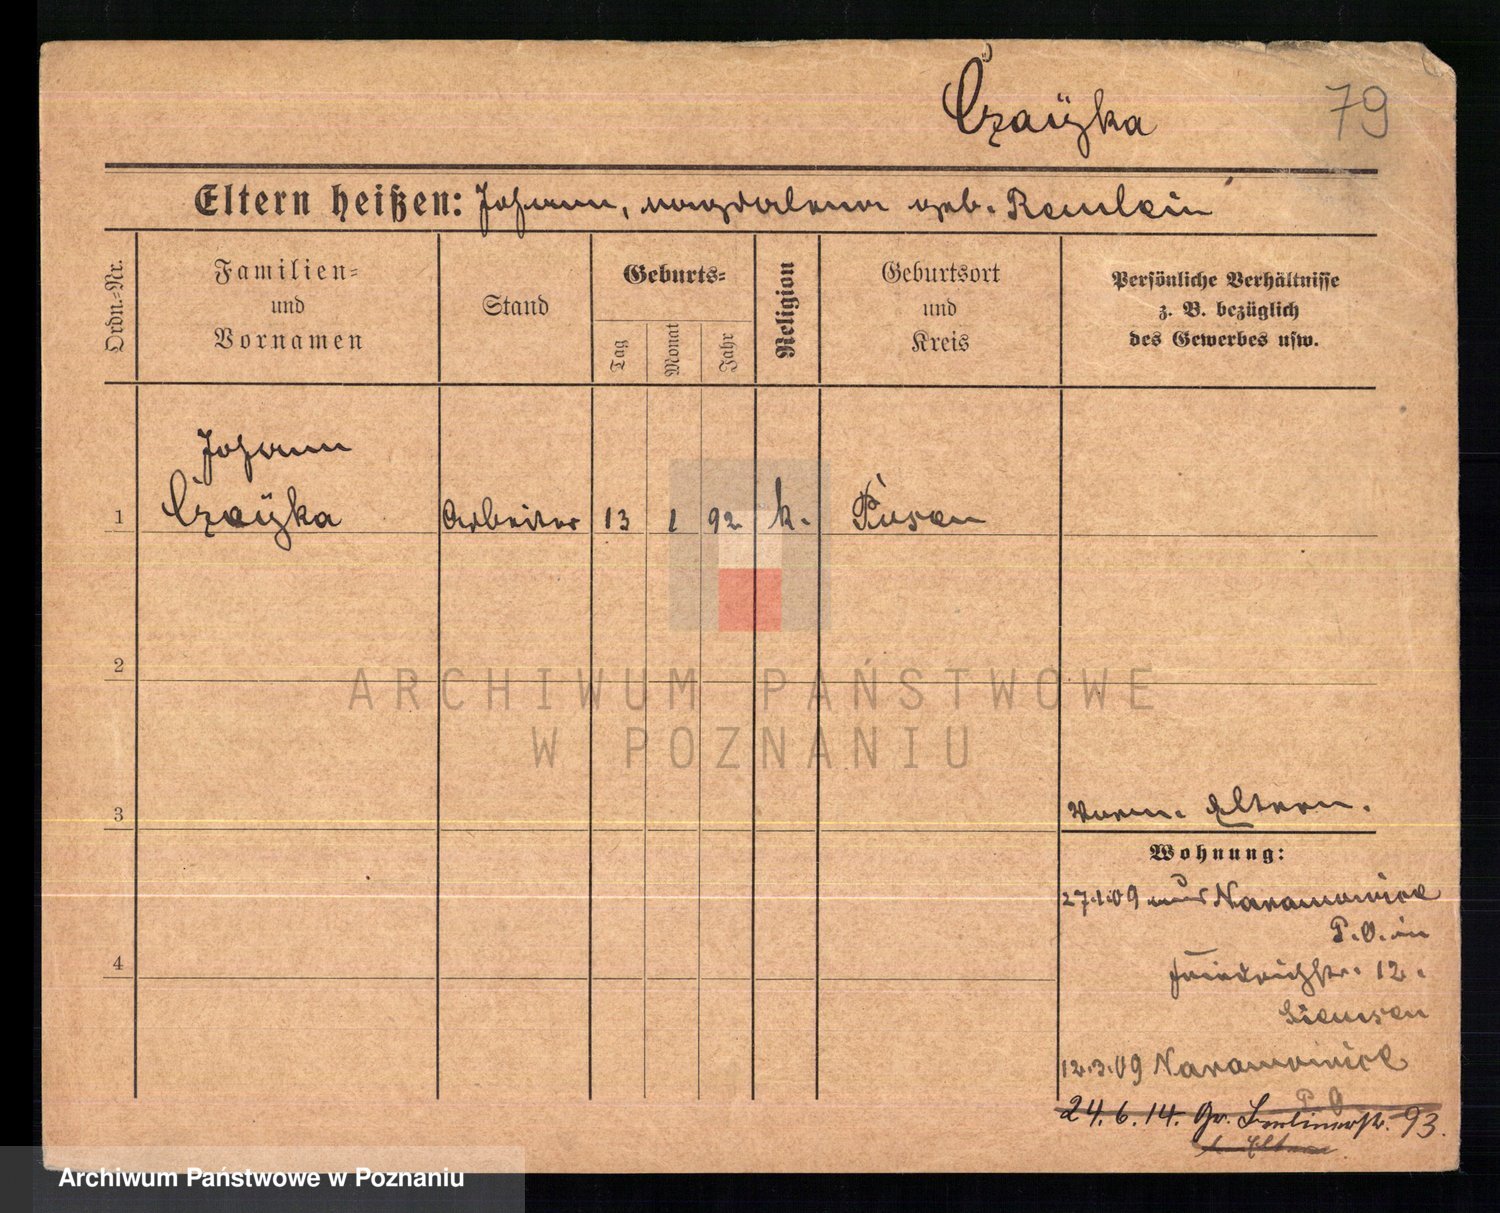 Czaÿka
79
Eltern heißen: Johann, Magdalena geb. Remlein
Ordn.-Nr.
Familien-
und
Vornamen
Stand
Geburts-
Tag
Monat
Jahr
Religion
Geburtsort
und
Kreis
Persönliche Verhältnisse
z. B. bezüglich
des Gewerbes usw.
Johann
1 Czaÿka Arbeiter 13 1 92 k. Posen
2
ARCHIWUM PAŃSTWOWE
W POZNANIU
3
Eltern.
Wohnung:
27.1.09 Naramowice
P.O. in
Friedrichstr. 12.
4
12.3.09 Naramowice
P.O.
24.6.14. Gr. Berlinerstr. 93.
Archiwum Państwowe w Poznaniu